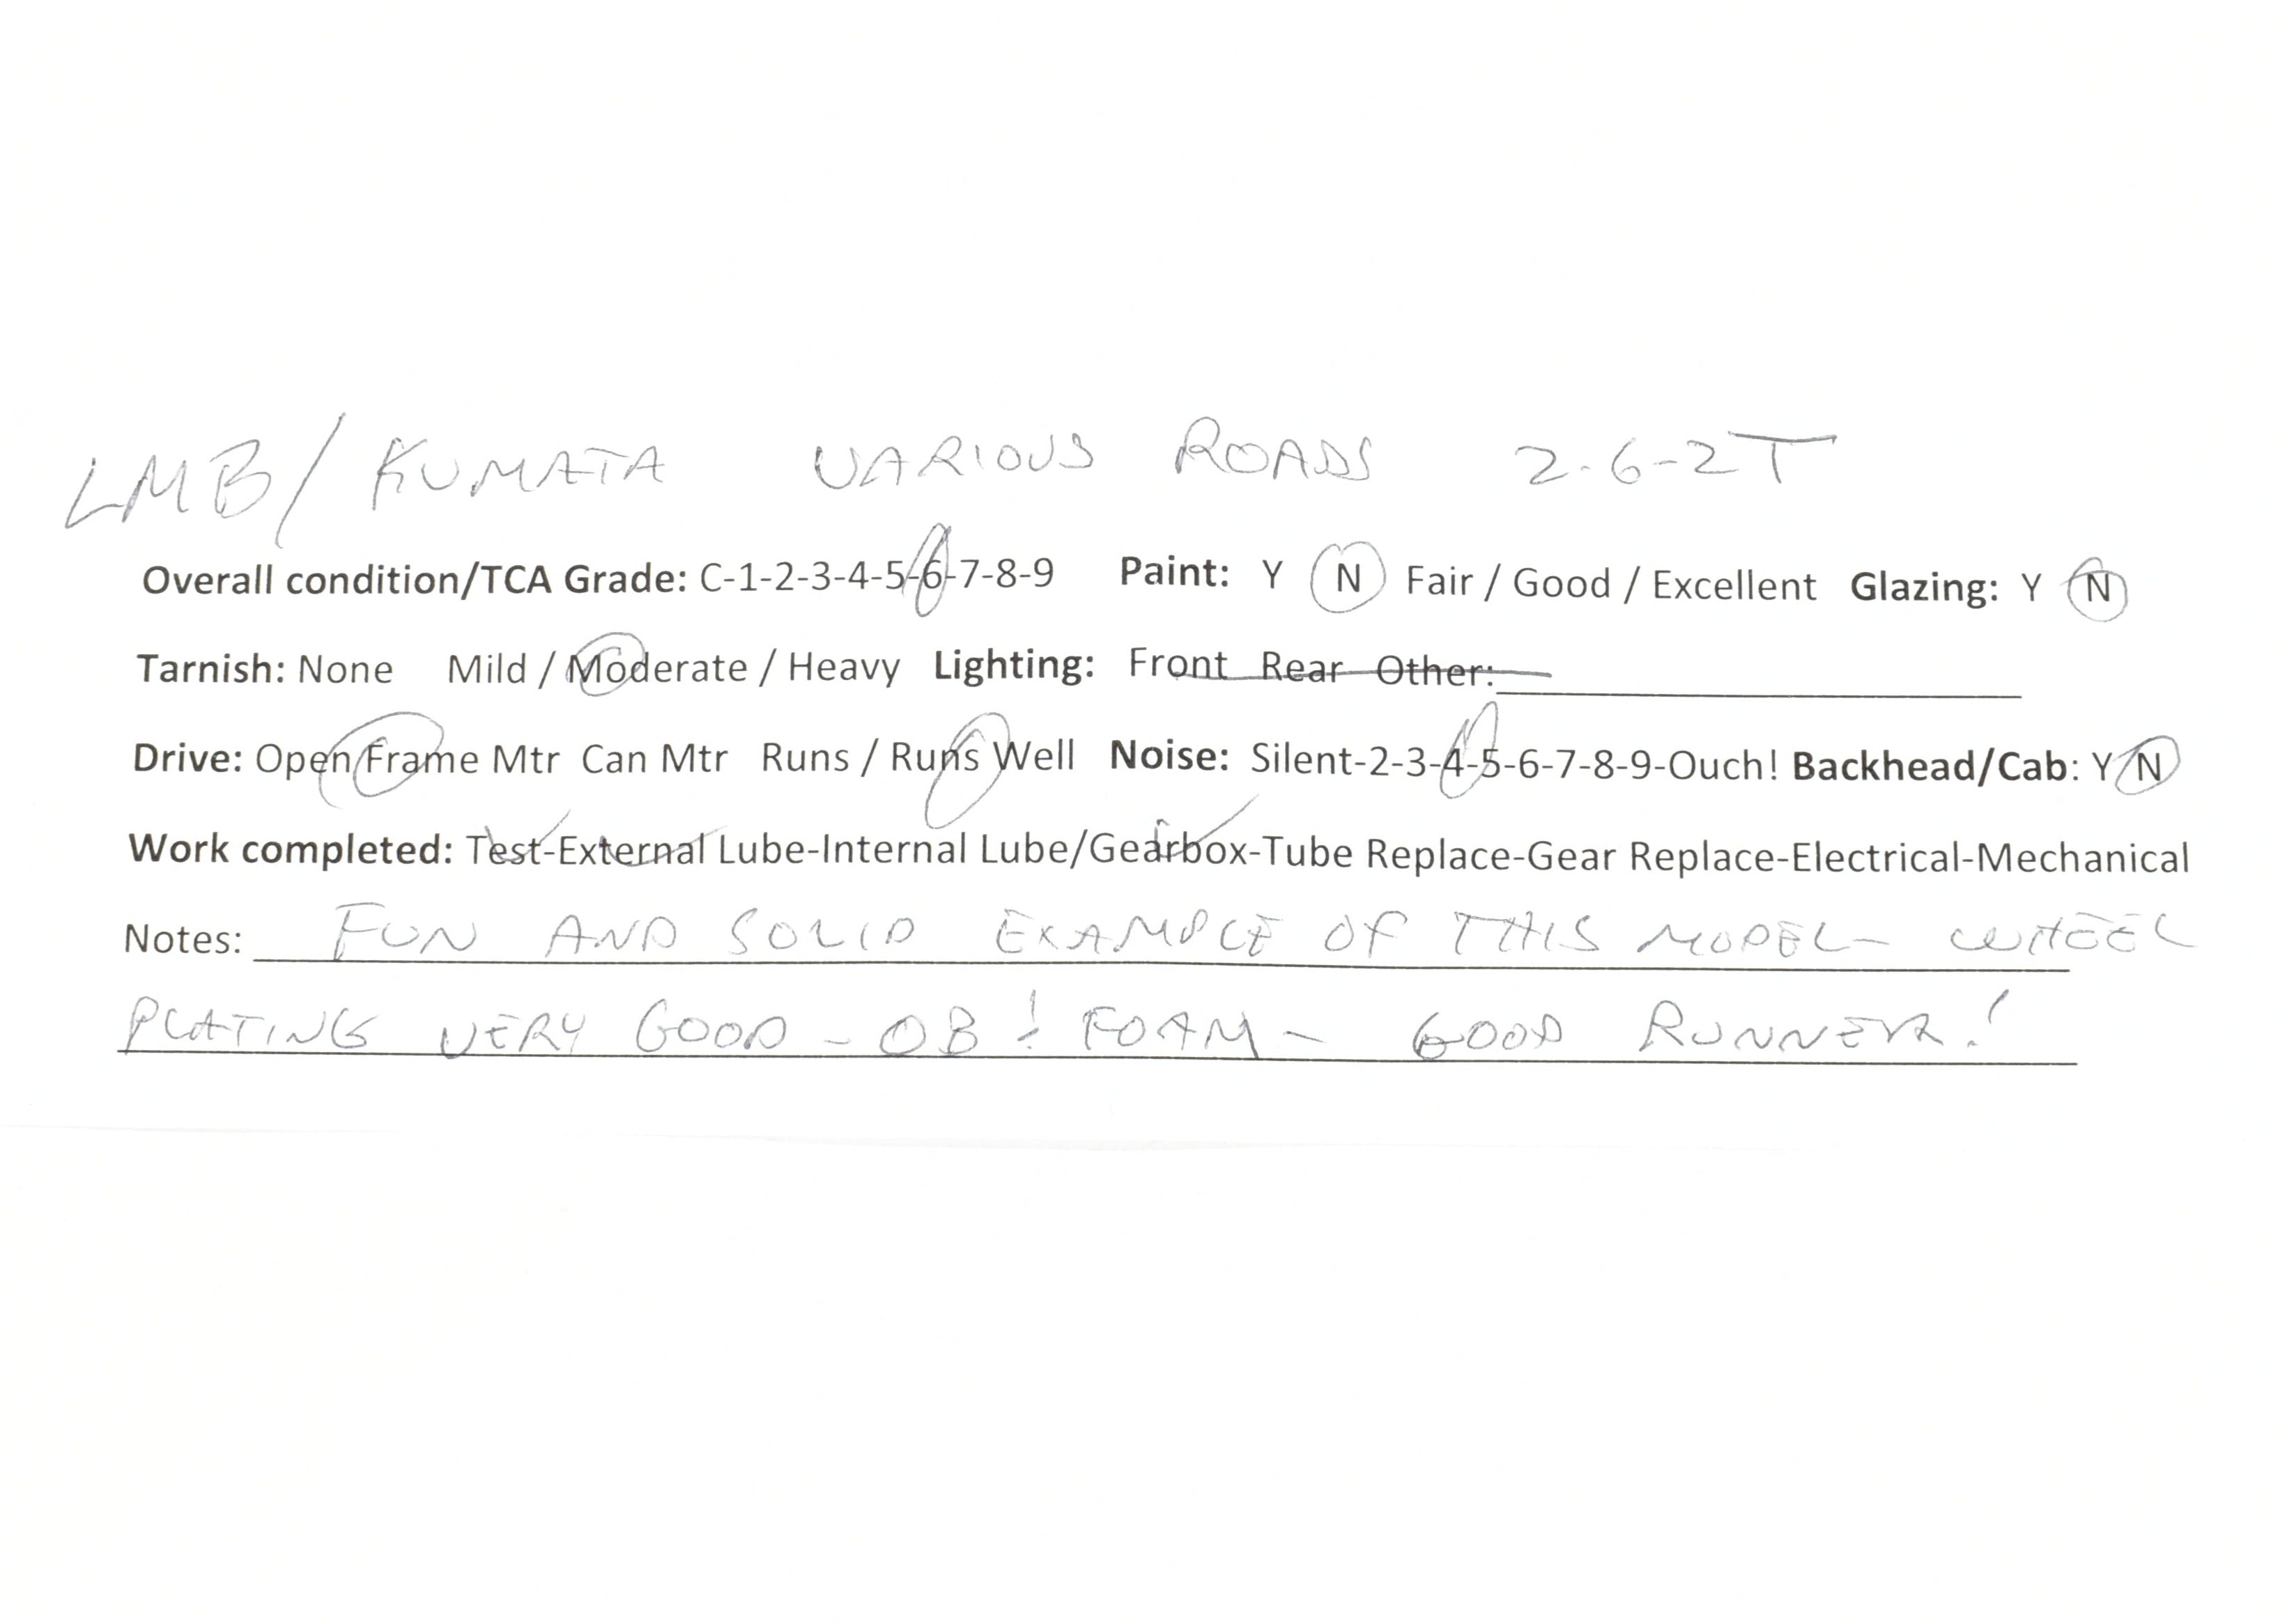 LMB/KUMATA VARIOUS ROADS 2-6-2T
Overall condition/TCA Grade: C-1-2-3-4-5-6-7-8-9 Paint: Y N Fair / Good / Excellent Glazing: Y N
Tarnish: None Mild / Moderate / Heavy Lighting: Front Rear Other:
Drive: Open Frame Mtr Can Mtr Runs / Runs Well Noise: Silent-2-3-4-5-6-7-8-9-Ouch! Backhead/Cab: Y N
Work completed: Test-External Lube-Internal Lube/Gearbox-Tube Replace-Gear Replace-Electrical-Mechanical
Notes: FUN AND SOLID EXAMPLE OF THIS MODEL- WHEEL
PLATING VERY GOOD - OB ! FOAM - GOOD RUNNER!